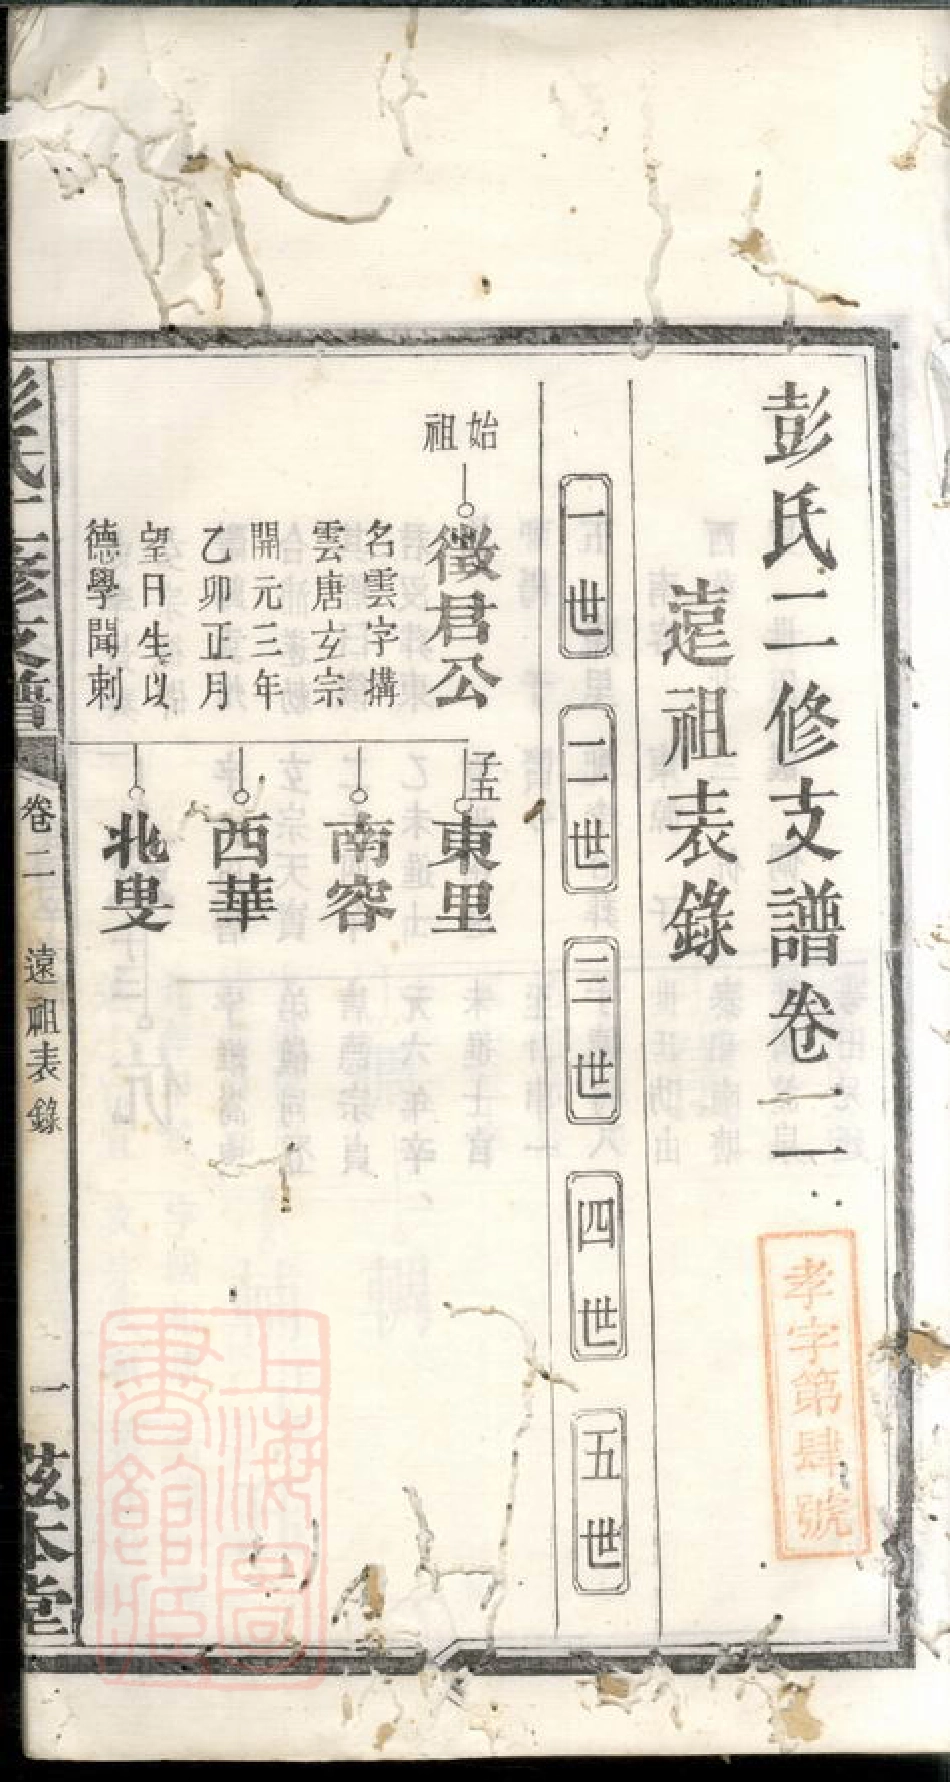 彭氏二修支譜卷二
遠祖表錄
一世
二世
三世
四世
五世
始祖
徵君公
名雲字搆
雲唐玄宗
開元三年
乙卯正月
望日生以
德學聞刺
子五
東里
南容
西華
北叟
彭氏二修支譜
卷二
遠祖表錄
一
茲本堂
孝字第肆號
上海圖書館藏